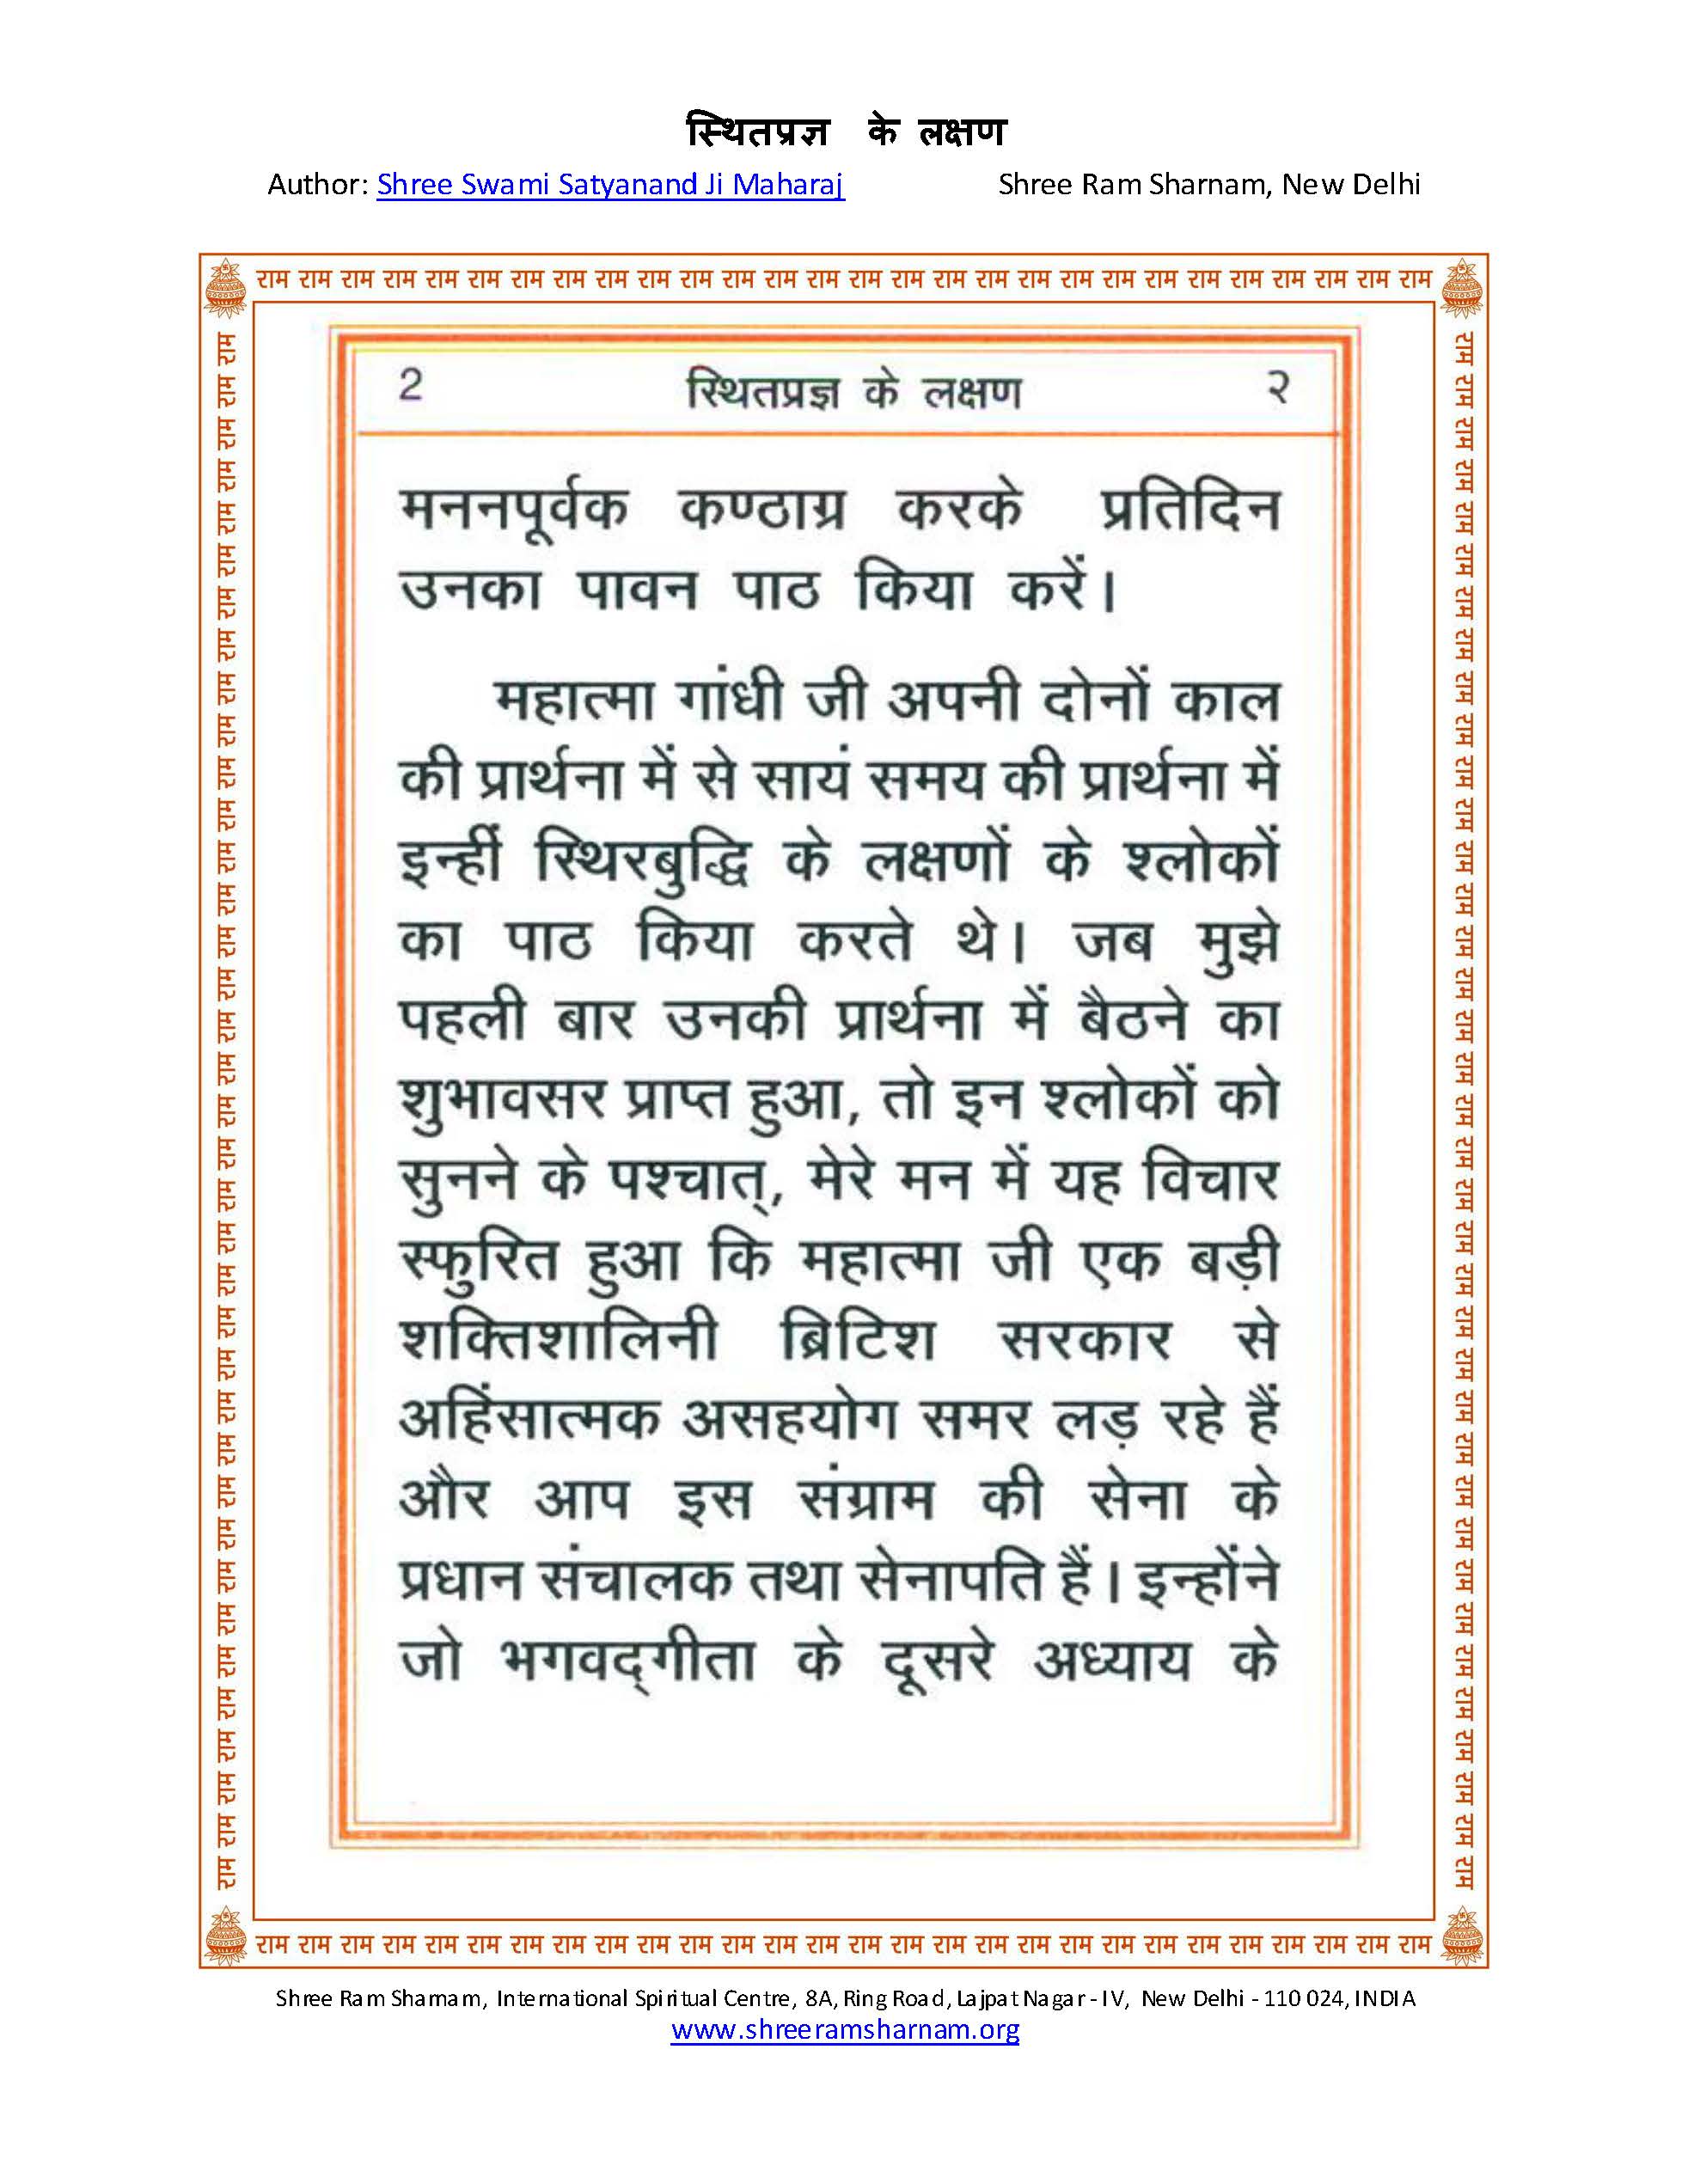 स्थितप्रज्ञ के लक्षण
Author: Shree Swami Satyanand Ji Maharaj Shree Ram Sharnam, New Delhi
राम राम राम राम राम राम राम राम राम राम राम राम राम राम राम राम राम राम राम राम राम राम राम राम राम राम राम राम
2 स्थितप्रज्ञ के लक्षण २
मननपूर्वक कण्ठाग्र करके प्रतिदिन
उनका पावन पाठ किया करें।
महात्मा गांधी जी अपनी दोनों काल
की प्रार्थना में से सायं समय की प्रार्थना में
इन्हीं स्थिरबुद्धि के लक्षणों के श्लोकों
का पाठ किया करते थे। जब मुझे
पहली बार उनकी प्रार्थना में बैठने का
शुभावसर प्राप्त हुआ, तो इन श्लोकों को
सुनने के पश्चात्, मेरे मन में यह विचार
स्फुरित हुआ कि महात्मा जी एक बड़ी
शक्तिशालिनी ब्रिटिश सरकार से
अहिंसात्मक असहयोग समर लड़ रहे हैं
और आप इस संग्राम की सेना के
प्रधान संचालक तथा सेनापति हैं। इन्होंने
जो भगवद्‌गीता के दूसरे अध्याय के
राम राम राम राम राम राम राम राम राम राम राम राम राम राम राम राम राम राम राम राम राम राम राम राम राम राम राम राम
राम राम राम राम राम राम राम राम राम राम राम राम राम राम राम राम राम राम राम राम राम राम राम राम राम राम राम राम राम राम राम राम राम राम राम राम राम
राम राम राम राम राम राम राम राम राम राम राम राम राम राम राम राम राम राम राम राम राम राम राम राम राम राम राम राम राम राम राम राम राम राम राम राम राम
Shree Ram Sharnam, International Spiritual Centre, 8A, Ring Road, Lajpat Nagar - IV, New Delhi - 110 024, INDIA
www.shreeramsharnam.org